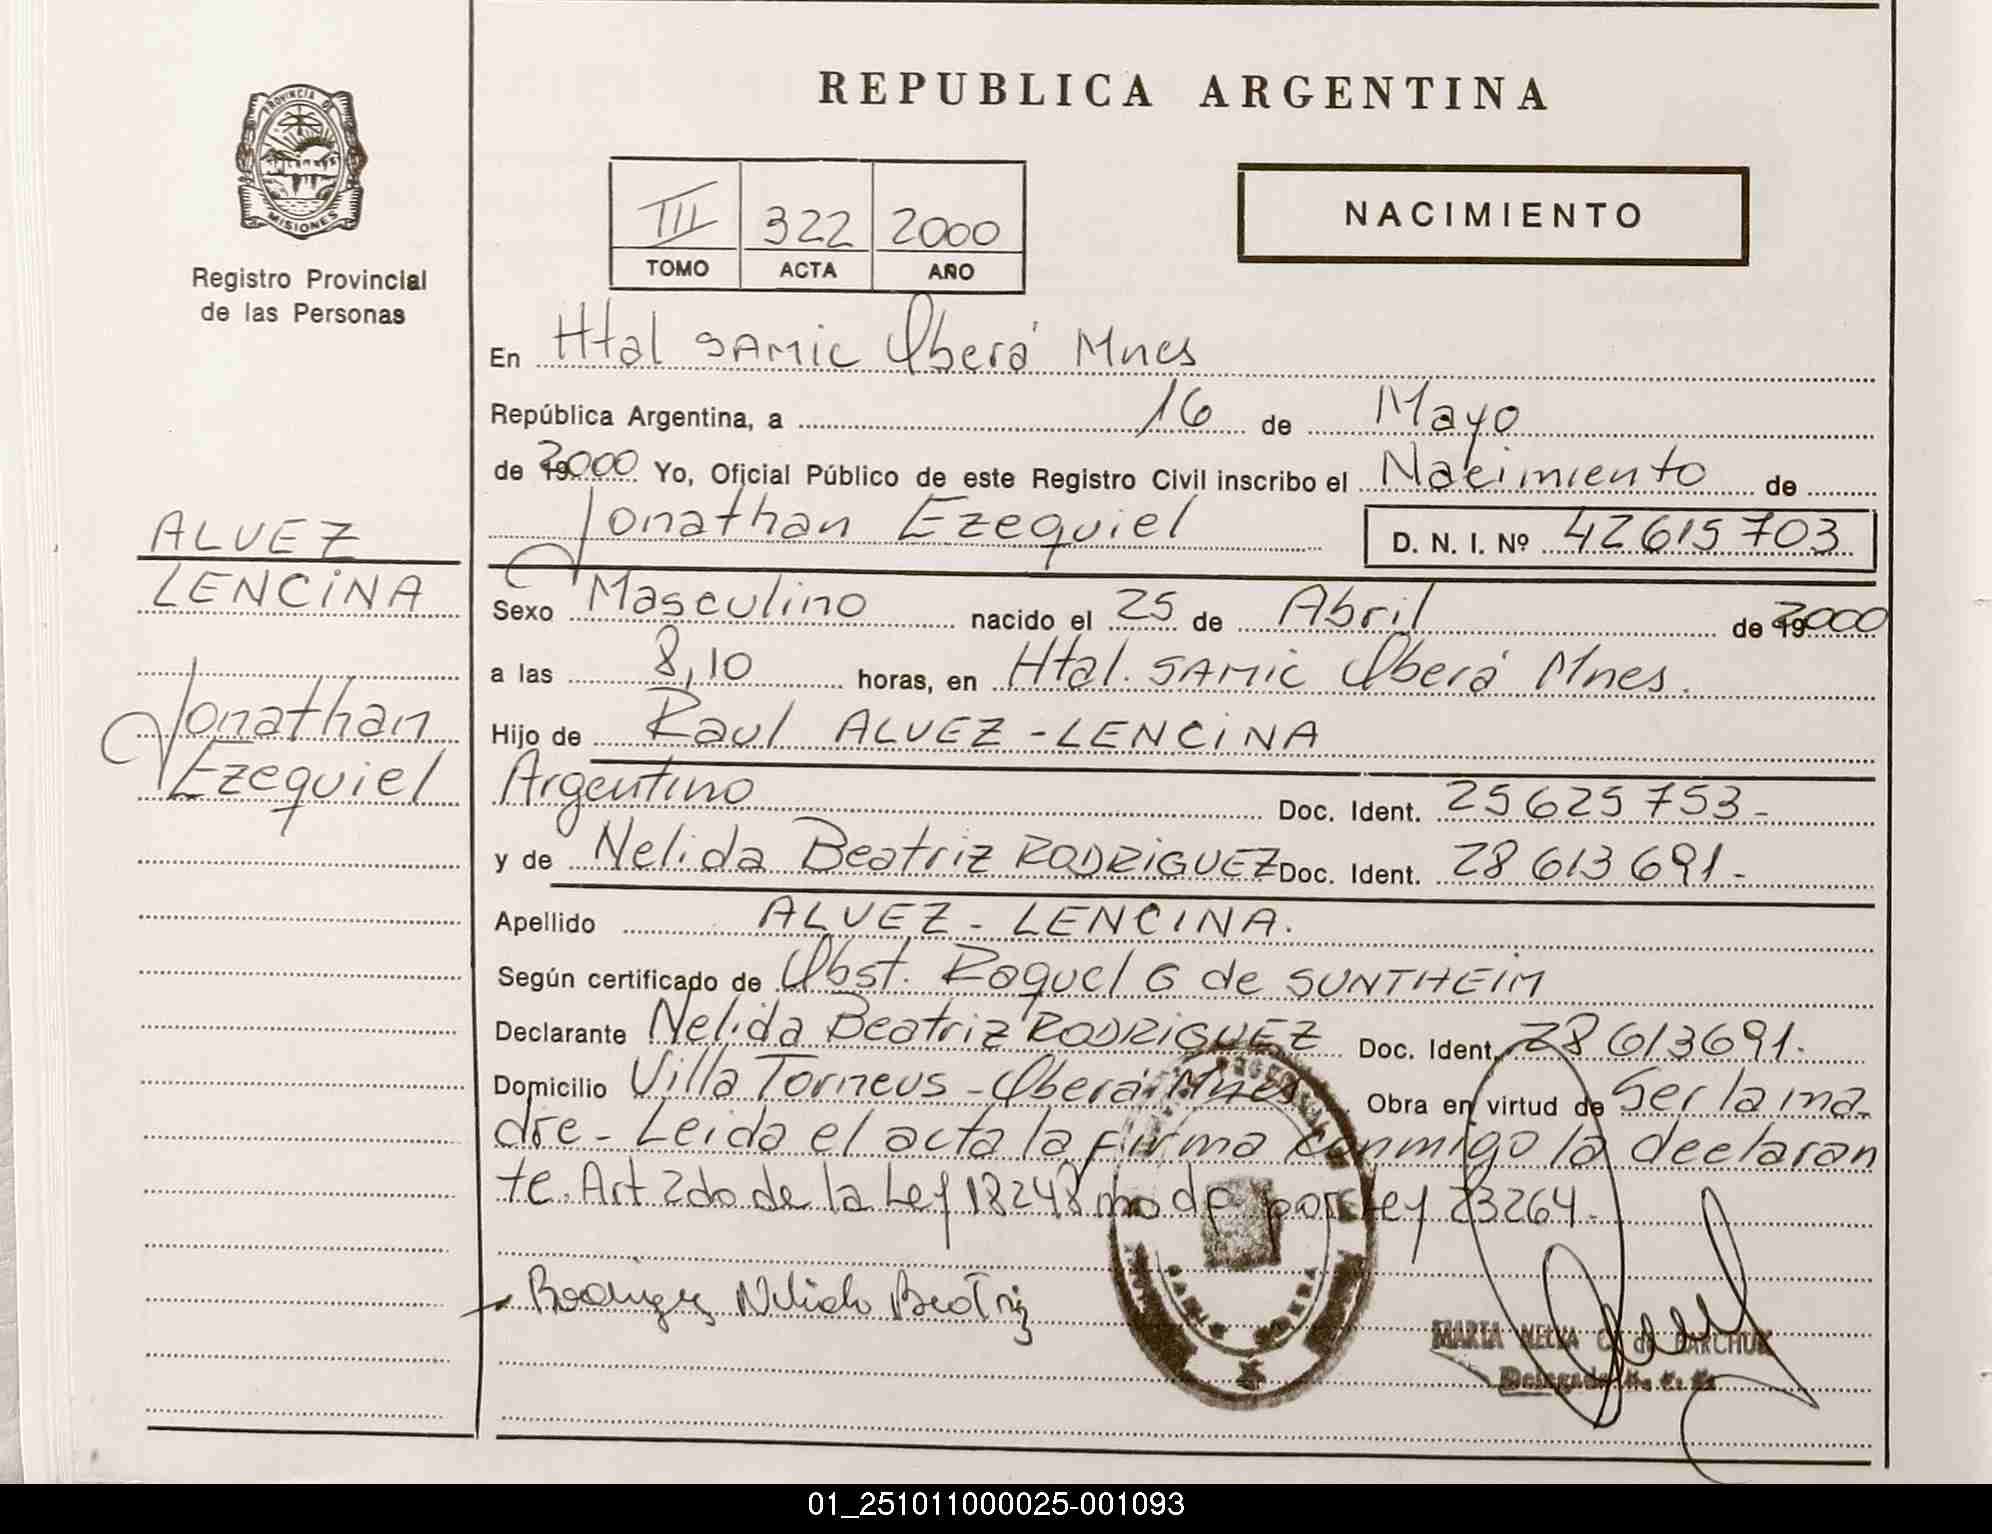 REPUBLICA ARGENTINA
PROVINCIA DE
MISIONES
Registro Provincial
de las Personas
III 322 2000
TOMO ACTA AÑO
NACIMIENTO
En Htal SAMIC Oberá Mnes
República Argentina, a 16 de Mayo
de 2000 Yo, Oficial Público de este Registro Civil inscribo el Nacimiento de
Jonathan Ezequiel D. N. I. Nº 42615703
ALVEZ
LENCINA
Jonathan
Ezequiel
Sexo Masculino nacido el 25 de Abril de 2000
a las 8,10 horas, en Htal. SAMIC Oberá Mnes.
Hijo de Raul ALVEZ - LENCINA
Argentino Doc. Ident. 25625753-
y de Nelida Beatriz RODRIGUEZ Doc. Ident. 28613691-
Apellido ALVEZ - LENCINA.
Según certificado de Obst. Raquel G de SUNTHEIM
Declarante Nelida Beatriz RODRIGUEZ Doc. Ident. 28613691.
Domicilio Villa Torneus - Oberá Mnes Obra en virtud de Ser la ma-
dre - Leida el acta la firma conmigo la declaran
te. Art 2do de la Ley 18248 por Ley 23264.
Rodriguez Nelida Beatriz
MARIA NELVA de
Delegada
01_251011000025-001093